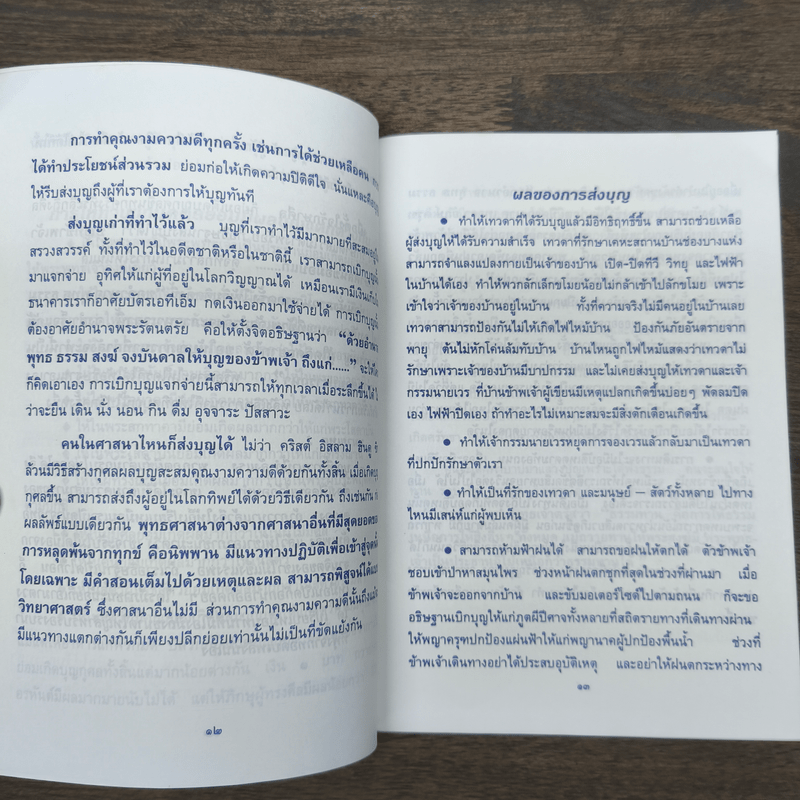 การทำคุณงามความดีทุกครั้ง เช่นการได้ช่วยเหลือคน
ได้ทำประโยชน์ส่วนรวม ย่อมก่อให้เกิดความปิติดีใจ นั่นแหละคือ
ให้รีบส่งบุญถึงผู้ที่เราต้องการให้บุญทันที
ส่งบุญเก่าที่ทำไว้แล้ว บุญที่เราทำไว้มีมากมายที่สะสมอยู่
สรวงสวรรค์ ทั้งที่ทำไว้ในอดีตชาติหรือในชาตินี้ เราสามารถเบิกบุญ
มาแจกจ่าย อุทิศให้แก่ผู้ที่อยู่ในโลกวิญญาณได้ เหมือนเรามีเงิน
ธนาคารเราก็อาศัยบัตรเอทีเอ็ม กดเงินออกมาใช้จ่ายได้ การเบิกบุญ
ต้องอาศัยอำนาจพระรัตนตรัย คือให้ตั้งจิตอธิษฐานว่า “ด้วยอำนาจ
พุทธ ธรรม สงฆ์ จงบันดาลให้บุญของข้าพเจ้า ถึงแก่......” จะให้
ก็คิดเอาเอง การเบิกบุญแจกจ่ายนี้สามารถให้ทุกเวลาเมื่อระลึกขึ้นได้
ว่าจะยืน เดิน นั่ง นอน กิน ดื่ม อุจจาระ ปัสสาวะ
คนในศาสนาไหนก็ส่งบุญได้ ไม่ว่า คริสต์ อิสลาม ฮินดู
ล้วนมีวิธีสร้างกุศลผลบุญสะสมคุณงามความดีด้วยกันทั้งสิ้น เมื่อเกิด
กุศลขึ้น สามารถส่งถึงผู้อยู่ในโลกทิพย์ได้ด้วยวิธีเดียวกัน ถึงเช่นกัน
ผลลัพธ์แบบเดียวกัน พุทธศาสนาต่างจากศาสนาอื่นที่มีสุดยอดของ
การหลุดพ้นจากทุกข์ คือนิพพาน มีแนวทางปฏิบัติเพื่อเข้าสู่จุด
โดยเฉพาะ มีคำสอนเต็มไปด้วยเหตุและผล สามารถพิสูจน์ได้
วิทยาศาสตร์ ซึ่งศาสนาอื่นไม่มี ส่วนการทำคุณงามความดีนั้นถึง
มีแนวทางแตกต่างกันก็เพียงปลีกย่อยเท่านั้นไม่เป็นที่ขัดแย้งกัน
๑๒
ผลของการส่งบุญ
● ทำให้เทวดาที่ได้รับบุญแล้วมีอิทธิฤทธิ์ขึ้น สามารถช่วยเหลือ
ผู้ส่งบุญให้ได้รับความสำเร็จ เทวดาที่รักษาเคหะสถานบ้านช่องบางแห่ง
สามารถจำแลงแปลงกายเป็นเจ้าของบ้าน เปิด-ปิดทีวี วิทยุ และไฟฟ้า
ในบ้านได้เอง ทำให้พวกลักเล็กขโมยน้อยไม่กล้าเข้าไปลักขโมย เพราะ
เข้าใจว่าเจ้าของบ้านอยู่ในบ้าน ทั้งที่ความจริงไม่มีคนอยู่ในบ้านเลย
เทวดาสามารถป้องกันไม่ให้เกิดไฟไหม้บ้าน ป้องกันภัยอันตรายจาก
พายุ ต้นไม้หักโค่นล้มทับบ้าน บ้านไหนถูกไฟไหม้แสดงว่าเทวดาไม่
รักษาเพราะเจ้าของบ้านมีบาปกรรม และไม่เคยส่งบุญให้เทวดาและเจ้า
กรรมนายเวร ที่บ้านข้าพเจ้าผู้เขียนมีเหตุแปลกเกิดขึ้นบ่อยๆ พัดลมปิด
เอง ไฟฟ้าปิดเอง ถ้าทำอะไรไม่เหมาะสมจะมีสิ่งตักเตือนเกิดขึ้น
● ทำให้เจ้ากรรมนายเวรหยุดการจองเวรแล้วกลับมาเป็นเทวดา
ที่ปกปักรักษาตัวเรา
● ทำให้เป็นที่รักของเทวดา และมนุษย์ – สัตว์ทั้งหลาย ไปทาง
ไหนมีเสน่ห์แก่ผู้พบเห็น
● สามารถห้ามฟ้าฝนได้ สามารถขอฝนให้ตกได้ ตัวข้าพเจ้า
ชอบเข้าป่าหาสมุนไพร ช่วงหน้าฝนตกชุกที่สุดในช่วงที่ผ่านมา เมื่อ
ข้าพเจ้าจะออกจากบ้าน และขับมอเตอร์ไซด์ไปตามถนน ก็จะขอ
อธิษฐานเบิกบุญให้แก่ภูตผีปีศาจทั้งหลายที่สถิตรายทางที่เดินทางผ่าน
ให้พญาครุฑปกป้องแผ่นฟ้าให้แก่พญานาคผู้ปกป้องพื้นน้ำ ช่วงที่
ข้าพเจ้าเดินทางอย่าได้ประสบอุบัติเหตุ และอย่าให้ฝนตกระหว่างทาง
๑๓